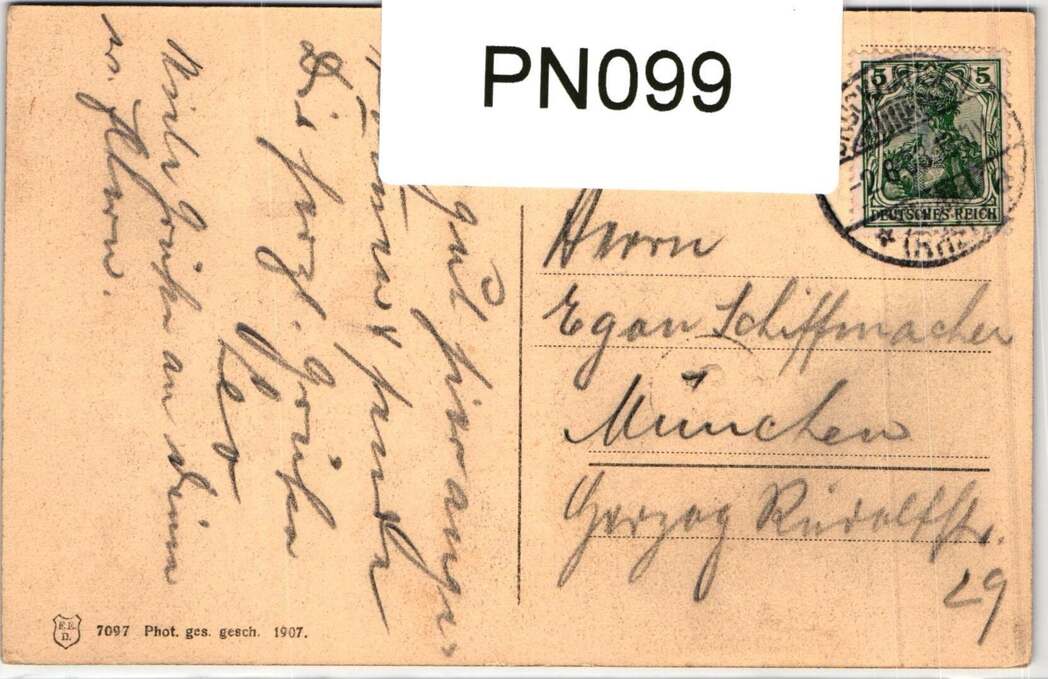 PN099
5 5
DEUTSCHES REICH
gut hier ange
kommen sende
Dir herzl. Grüße
Leo
Viele Grüße an Deine
w. Eltern.
Herrn
Egon Schiffmacher
München
Herzog Rudolfstr.
29
F.E.
D.
7097 Phot. ges. gesch. 1907.